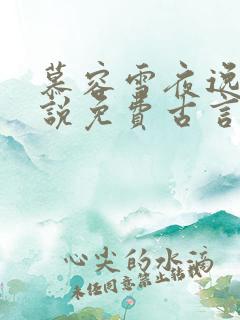 慕容雪夜逸
说免费古言
心尖的水滴
未经同意禁止转载